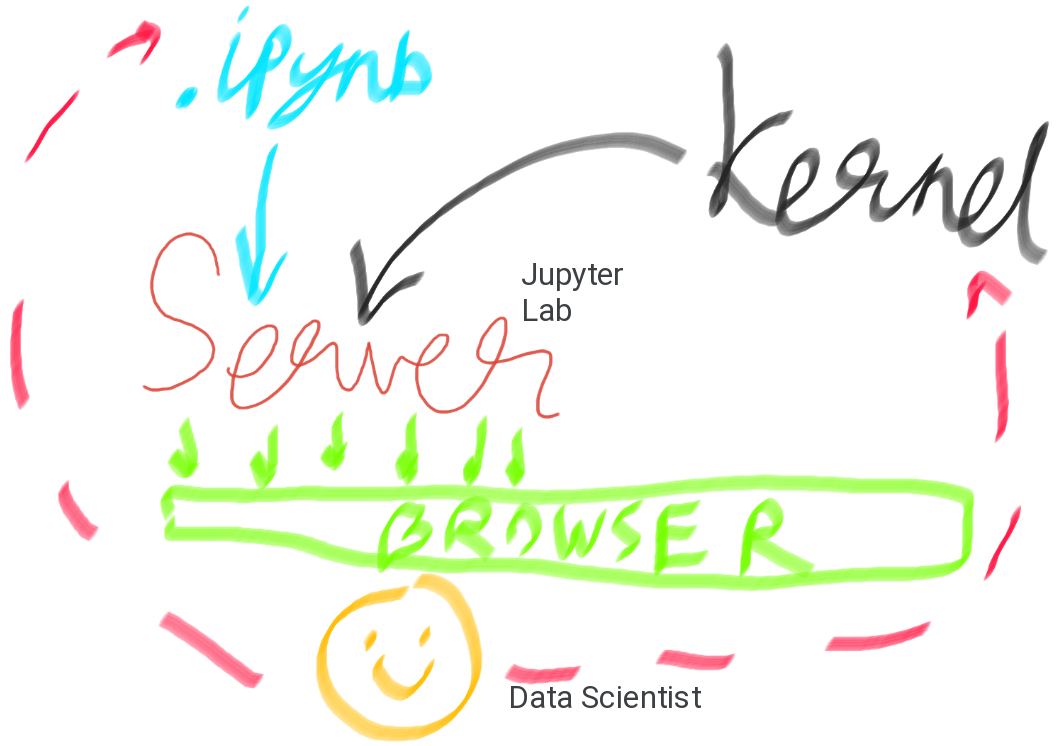 .ipynb
Kernel
Jupyter
Lab
Server
BROWSER
Data Scientist